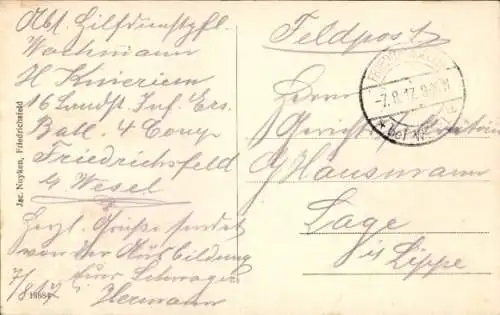 Abt. Hilfdienstpfl.
Wachmann
H Knierim
16 Landst. Inf. Ers.
Batl. 4 Comp
Friedrichsfeld
b/ Wesel
Herzl. Grüße sendet
von der Ausbildung
Euer Schwager
7/8 17 Hermann
13684
Jac. Nuyken, Friedrichsfeld
Feldpost
-7.8.17. 8-9N
* bei
Herrn
G Hausmann
Lage
i/s Lippe